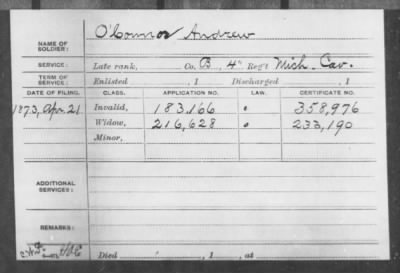 O'Connor Andrew
NAME OF SOLDIER:
SERVICE: Late rank, Co. B, 4" Reg't Mich. Cav.
TERM OF SERVICE: Enlisted , 1 Discharged , 1
DATE OF FILING. CLASS. APPLICATION NO. LAW. CERTIFICATE NO.
1873, Apr 21 Invalid, 183,166 358,976
Widow, 216,628 233,190
Minor,
ADDITIONAL SERVICES:
REMARKS:
Died , 1 , at